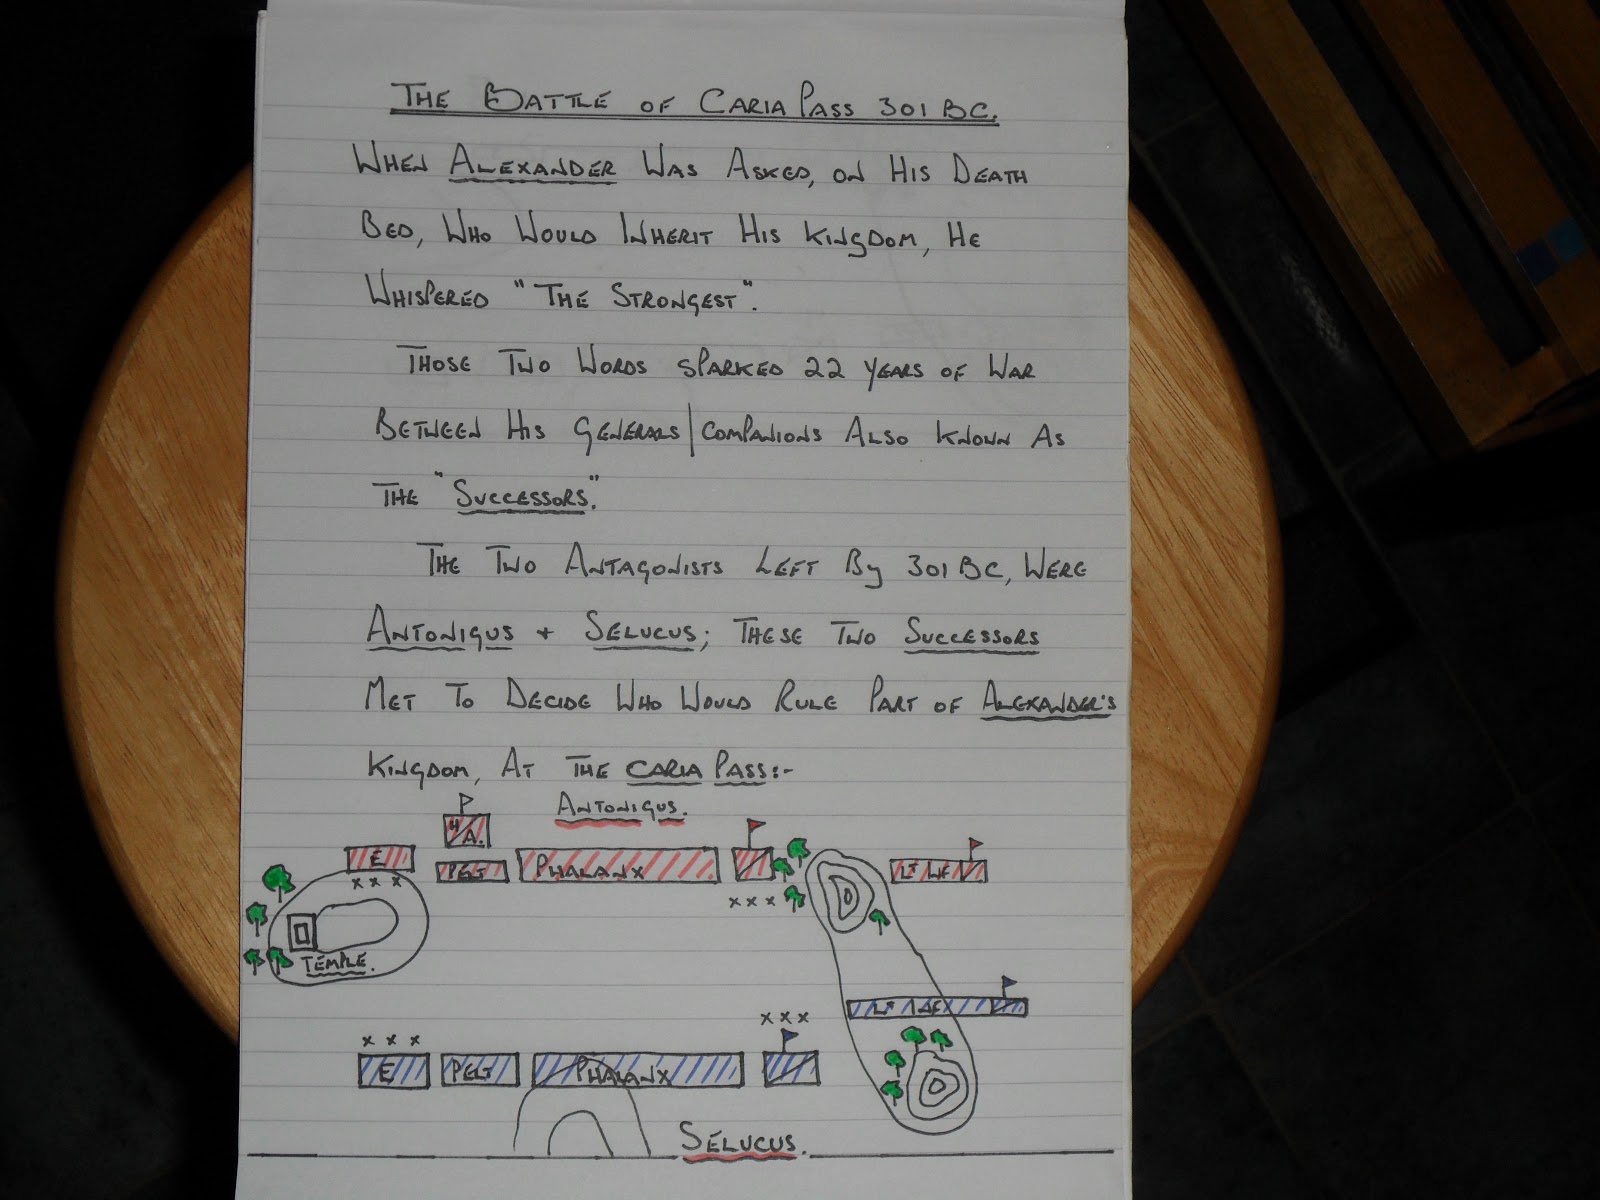 THE BATTLE OF CARIA PASS 301 BC.
WHEN ALEXANDER WAS ASKED, ON HIS DEATH
BED, WHO WOULD INHERIT HIS KINGDOM, HE
WHISPERED "THE STRONGEST".
THOSE TWO WORDS SPARKED 22 YEARS OF WAR
BETWEEN HIS GENERALS/COMPANIONS ALSO KNOWN AS
THE "SUCCESSORS".
THE TWO ANTAGONISTS LEFT BY 301 BC, WERE
ANTONIGUS + SELUCUS; THESE TWO SUCCESSORS
MET TO DECIDE WHO WOULD RULE PART OF ALEXANDER'S
KINGDOM, AT THE CARIA PASS:-
ANTONIGUS.
H/A.
E
PELT
PHALANX
x x x
x x x
TEMPLE.
x x x
x x x
E
PELT
PHALANX
SELUCUS.